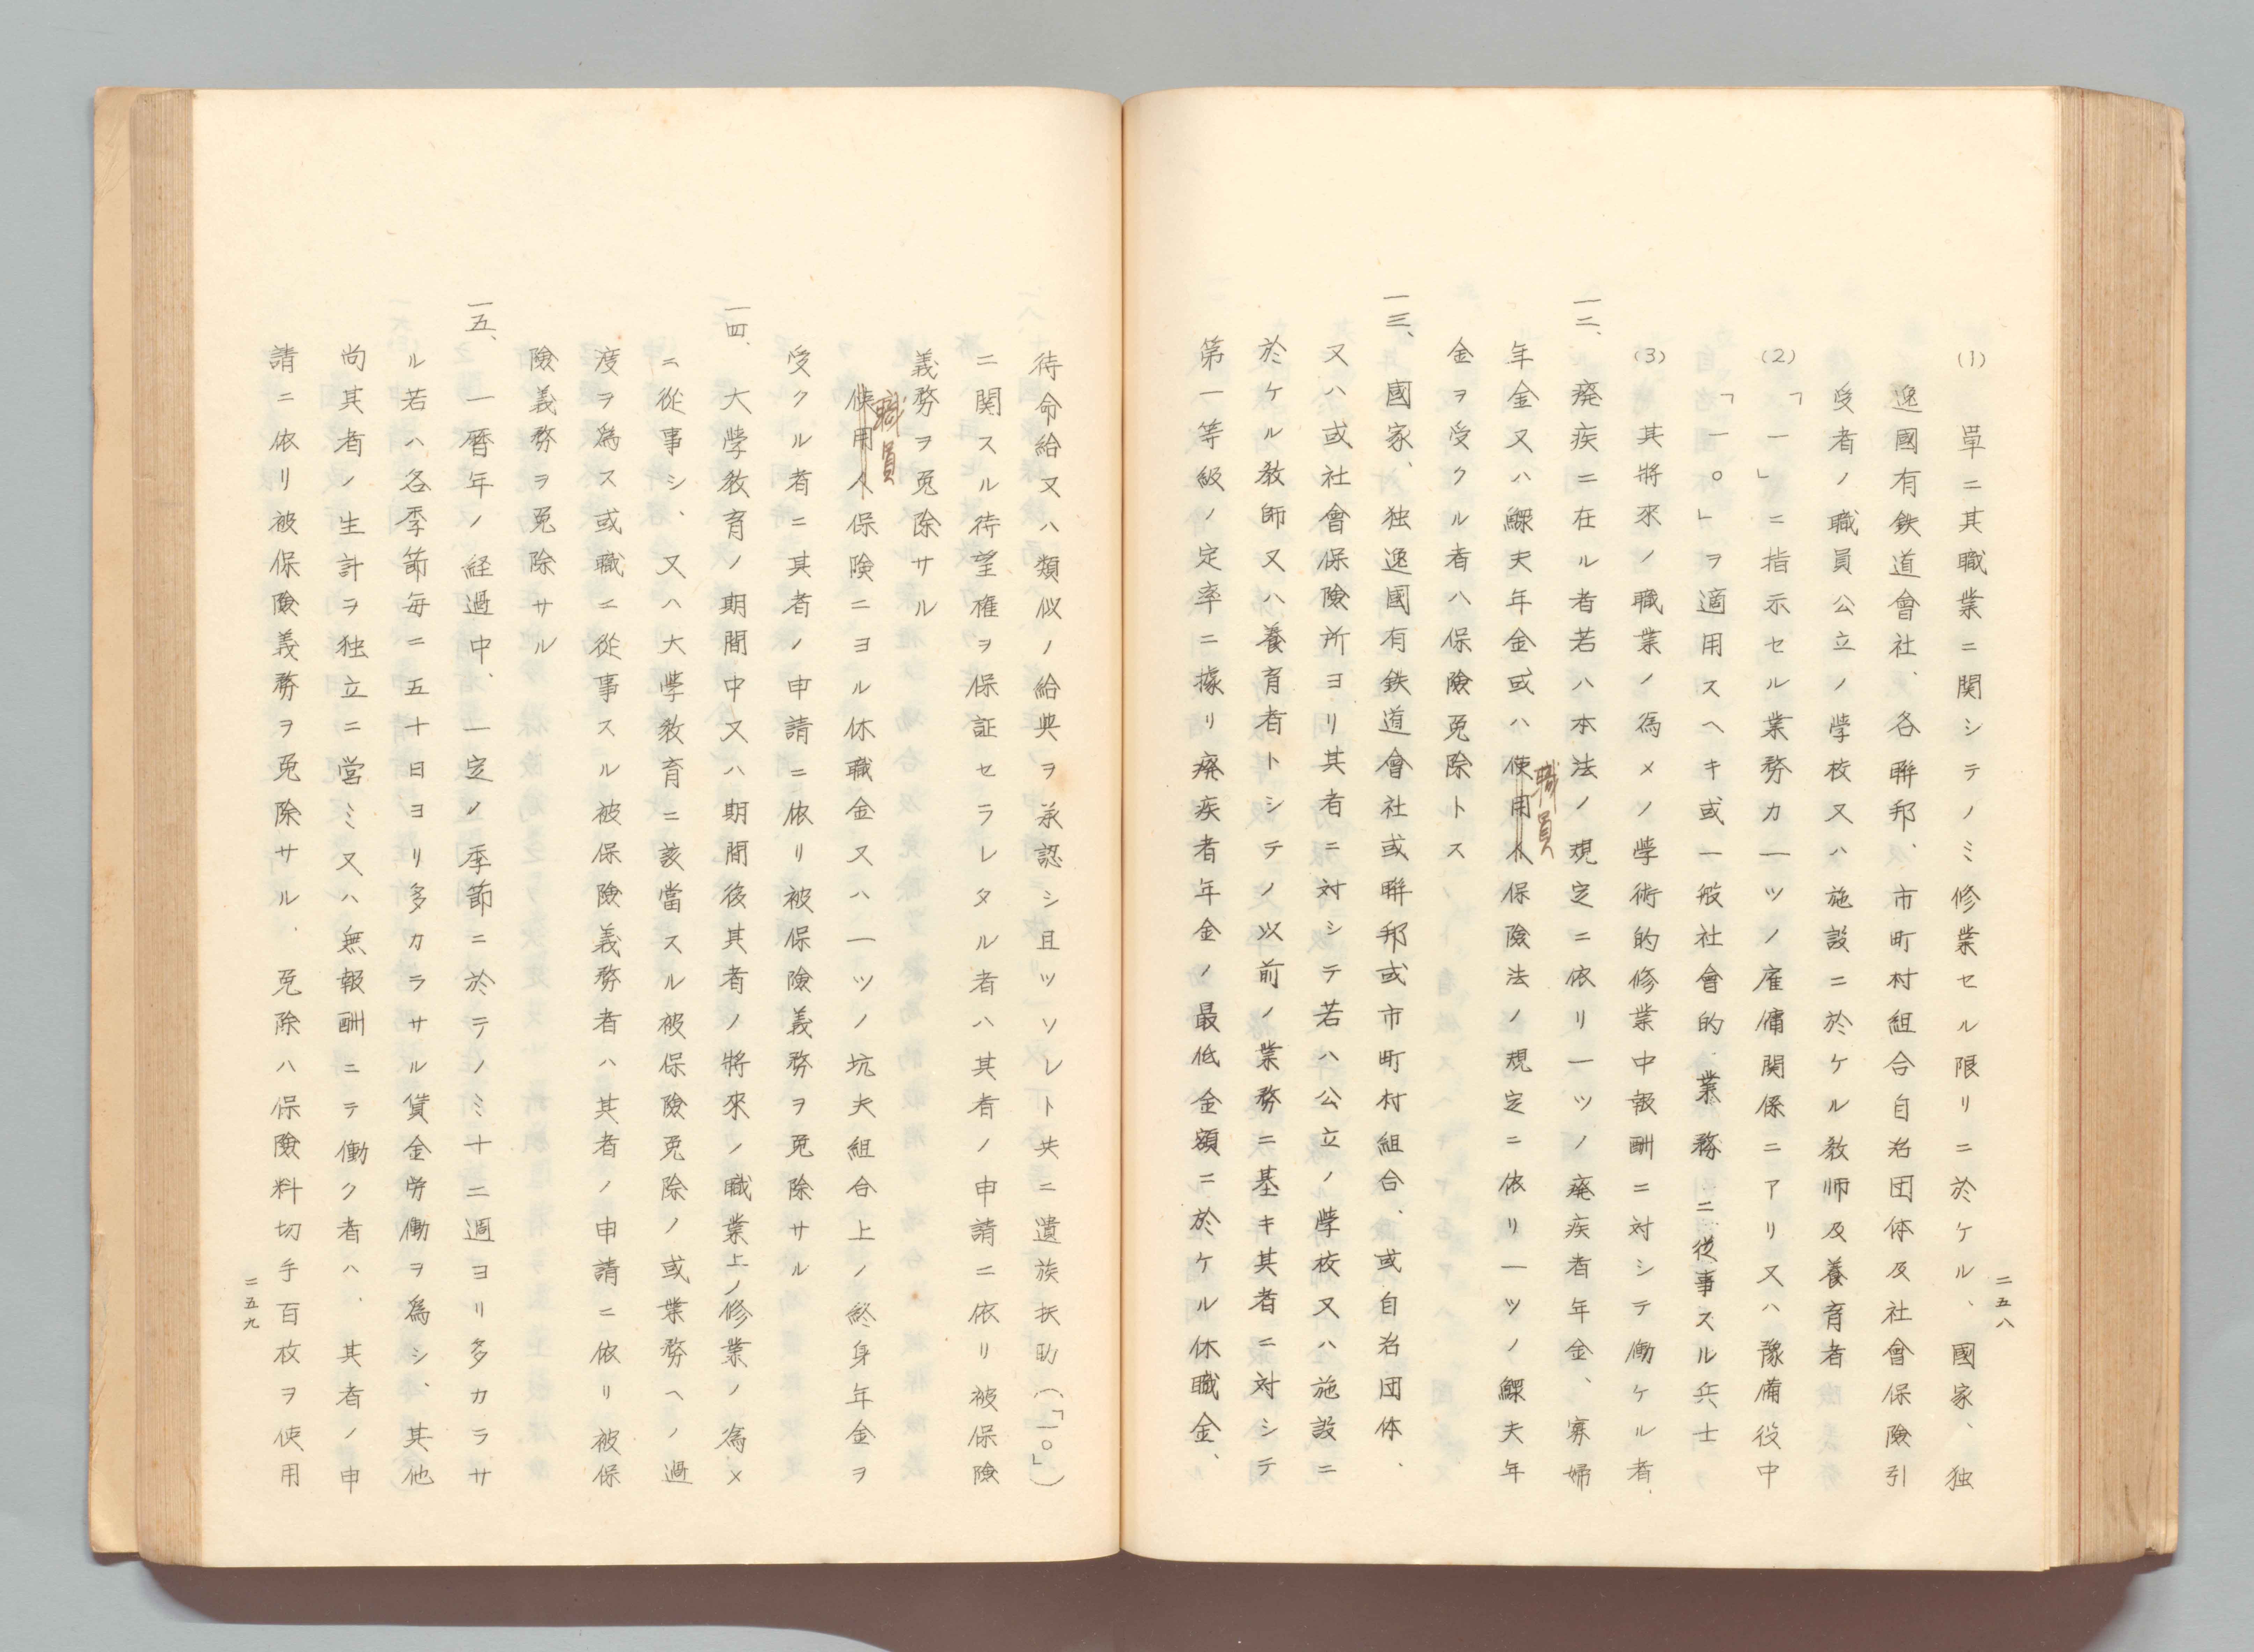 (1) 單ニ其職業ニ関シテノミ修業セル限リニ於ケル、國家、独
逸國有鉄道會社、各聯邦、市町村組合自治団体及社會保險引
受者ノ職員公立ノ学校又ハ施設ニ於ケル教师及養育者
(2) 「一」ニ指示セル業務カ一ツノ雇傭関係ニアリ又ハ豫備役中
「一〇」ヲ適用スヘキ或一般社會的業務ニ従事スル兵士
(3) 其將來ノ職業ノ為メノ學術的修業中報酬ニ対シテ働ケル者
一二、廃疾ニ在ル者若ハ本法ノ規定ニ依リ一ツノ廃疾者年金、寡婦
年金又ハ鰥夫年金或ハ使用人保險法ノ規定ニ依リ一ツノ鰥夫年
職員
金ヲ受クル者ハ保險免除トス
一三、國家、独逸國有鉄道會社或聯邦或市町村組合、或自治団体、
又ハ或社會保險所ヨリ其者ニ対シテ若ハ公立ノ学校又ハ施設ニ
於ケル教師又ハ養育者トシテノ以前ノ業務ニ基キ其者ニ対シテ
第一等級ノ定率ニ據リ廃疾者年金ノ最低金額ニ於ケル休職金、
二五八
待命給又ハ類似ノ給與ヲ承認シ且ツソレト共ニ遺族扶助(「一〇」)
ニ関スル待望権ヲ保証セラレタル者ハ其者ノ申請ニ依リ被保險
義務ヲ免除サル
職員
使用人保険ニヨル休職金又ハ一ツノ坑夫組合上ノ終身年金ヲ
受クル者ニ其者ノ申請ニ依リ被保險義務ヲ免除サル
一四、大学教育ノ期間中又ハ期間後其者ノ將來ノ職業上ノ修業ノ為メ
ニ從事シ、又ハ大学教育ニ該當スル被保險免除ノ或業務ヘノ過
度ヲ為ス或職ニ從事スル被保險義務者ハ其者ノ申請ニ依リ被保
險義務ヲ免除サル
一五、一暦年ノ経過中、一定ノ季節ニ於テノミ十二週ヨリ多カラサ
ル若ハ各季節毎ニ五十日ヨリ多カラサル賃金労働ヲ為シ、其他
尚其者ノ生計ヲ独立ニ営ミ又ハ無報酬ニテ働ク者ハ、其者ノ申
請ニ依リ被保險義務ヲ免除サル、免除ハ保險料切手百枚ヲ使用
二五九